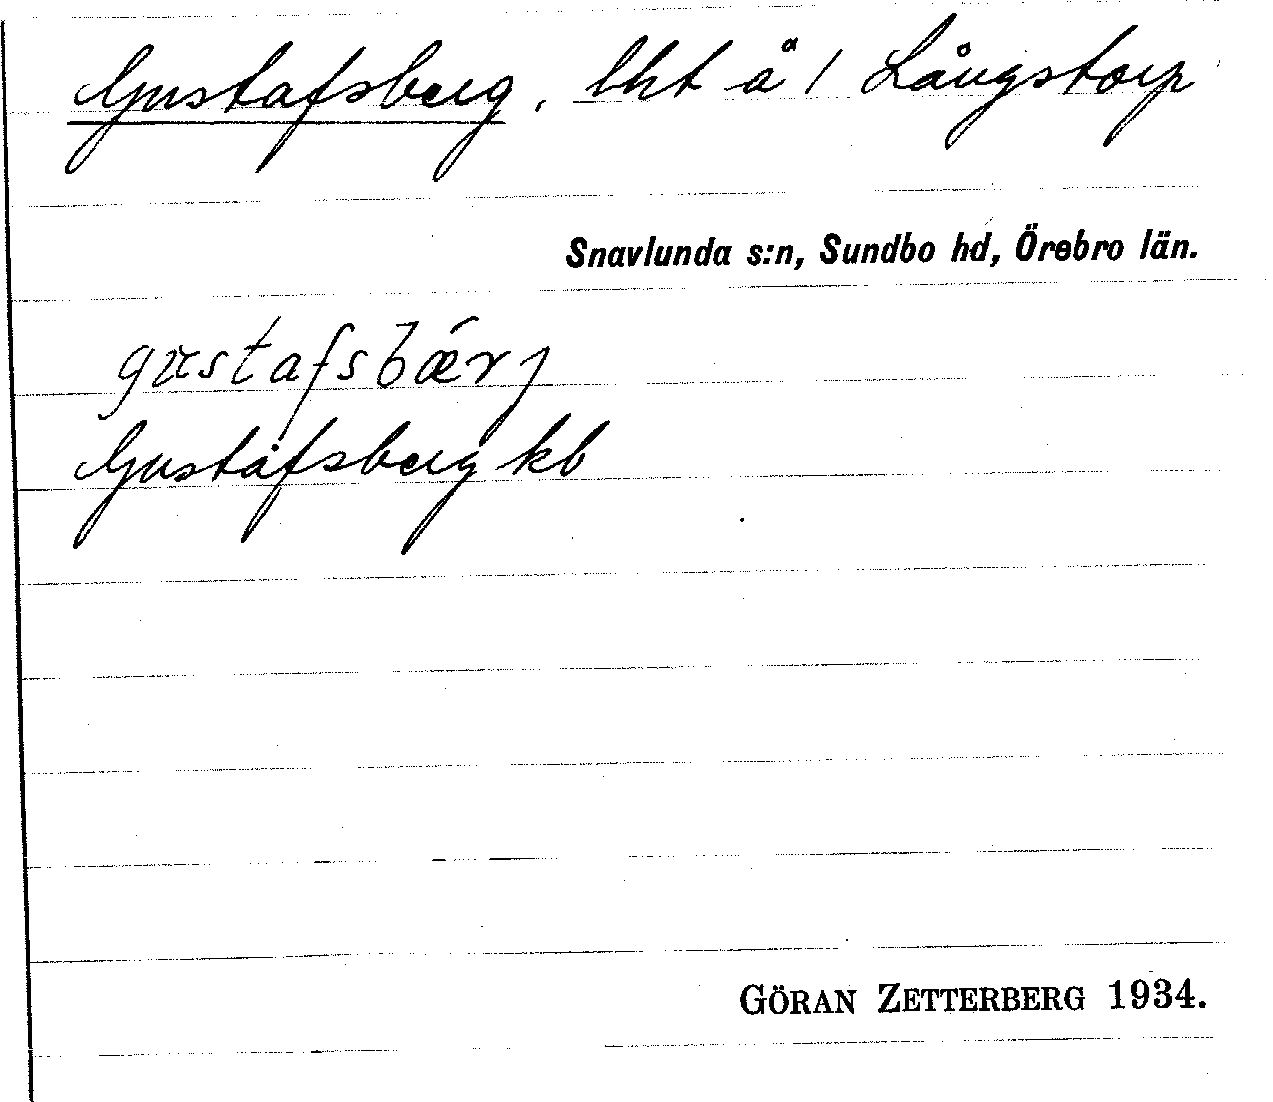 Gustafsberg, lht å 1 Långstorp
Snavlunda s:n, Sundbo hd, Örebro län.
gustafsbærj
Gustafsberg kb
GÖRAN ZETTERBERG 1934.